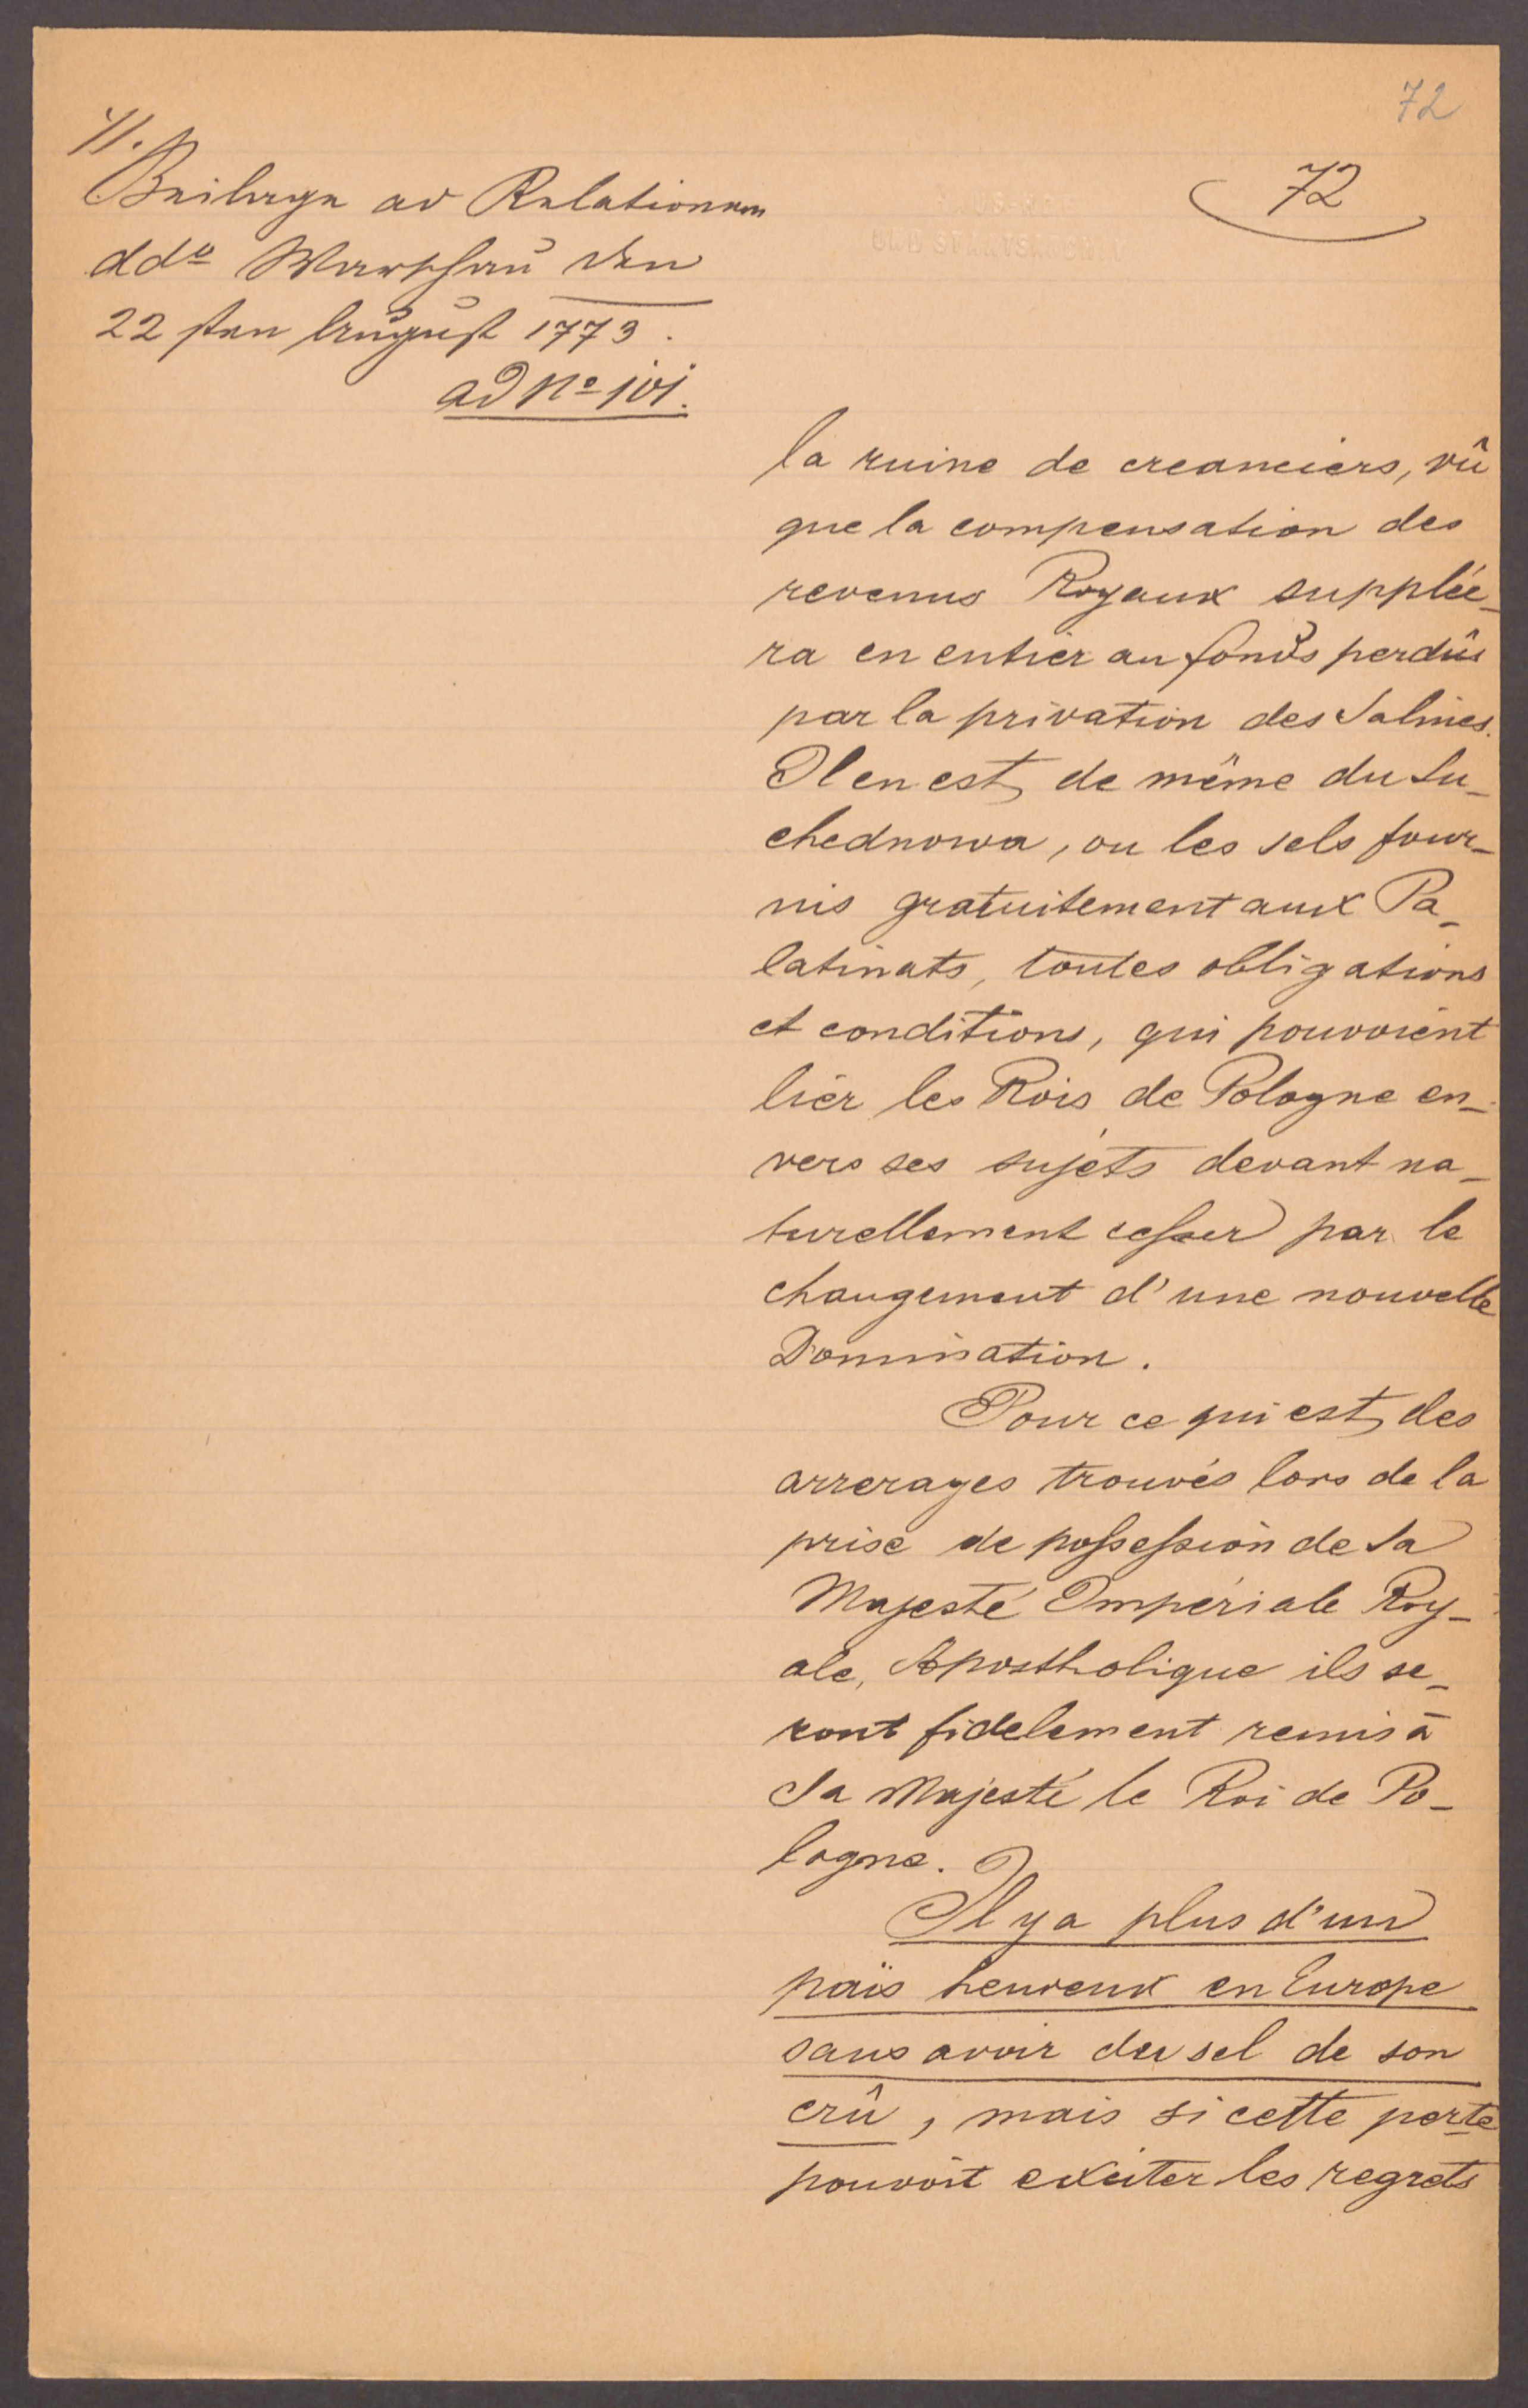 72
4.
72
Beilage ad Relationem
ddo Warschau den
22sten August 1773.
ad No 101.
la ruine de creanciers, vû
que la compensation des
revenus Royaux supplée_
ra en entier au fonds perdûs
par la privation des Salines.
Il en est de même du Su_
chednowa, ou les sels four_
nis gratuitement aux Pa_
latinats, toutes obligations
et conditions, qui pouvoient
lier les Rois de Pologne en_
vers ses sujets devant na_
turellement cesser par le
changement d'une nouvelle
Domination.
Pour ce qui est des
arrerages trouvés lors de la
prise de possession de Sa
Majesté Impériale Roy_
ale, Apostholique ils se_
ront fidelement remis à
Sa Majesté le Roi de Po_
logne.
Il y a plus d'un
païs heureux en Europe
sans avoir du sel de son
crû, mais si cette perte
pouvoit exciter les regrets